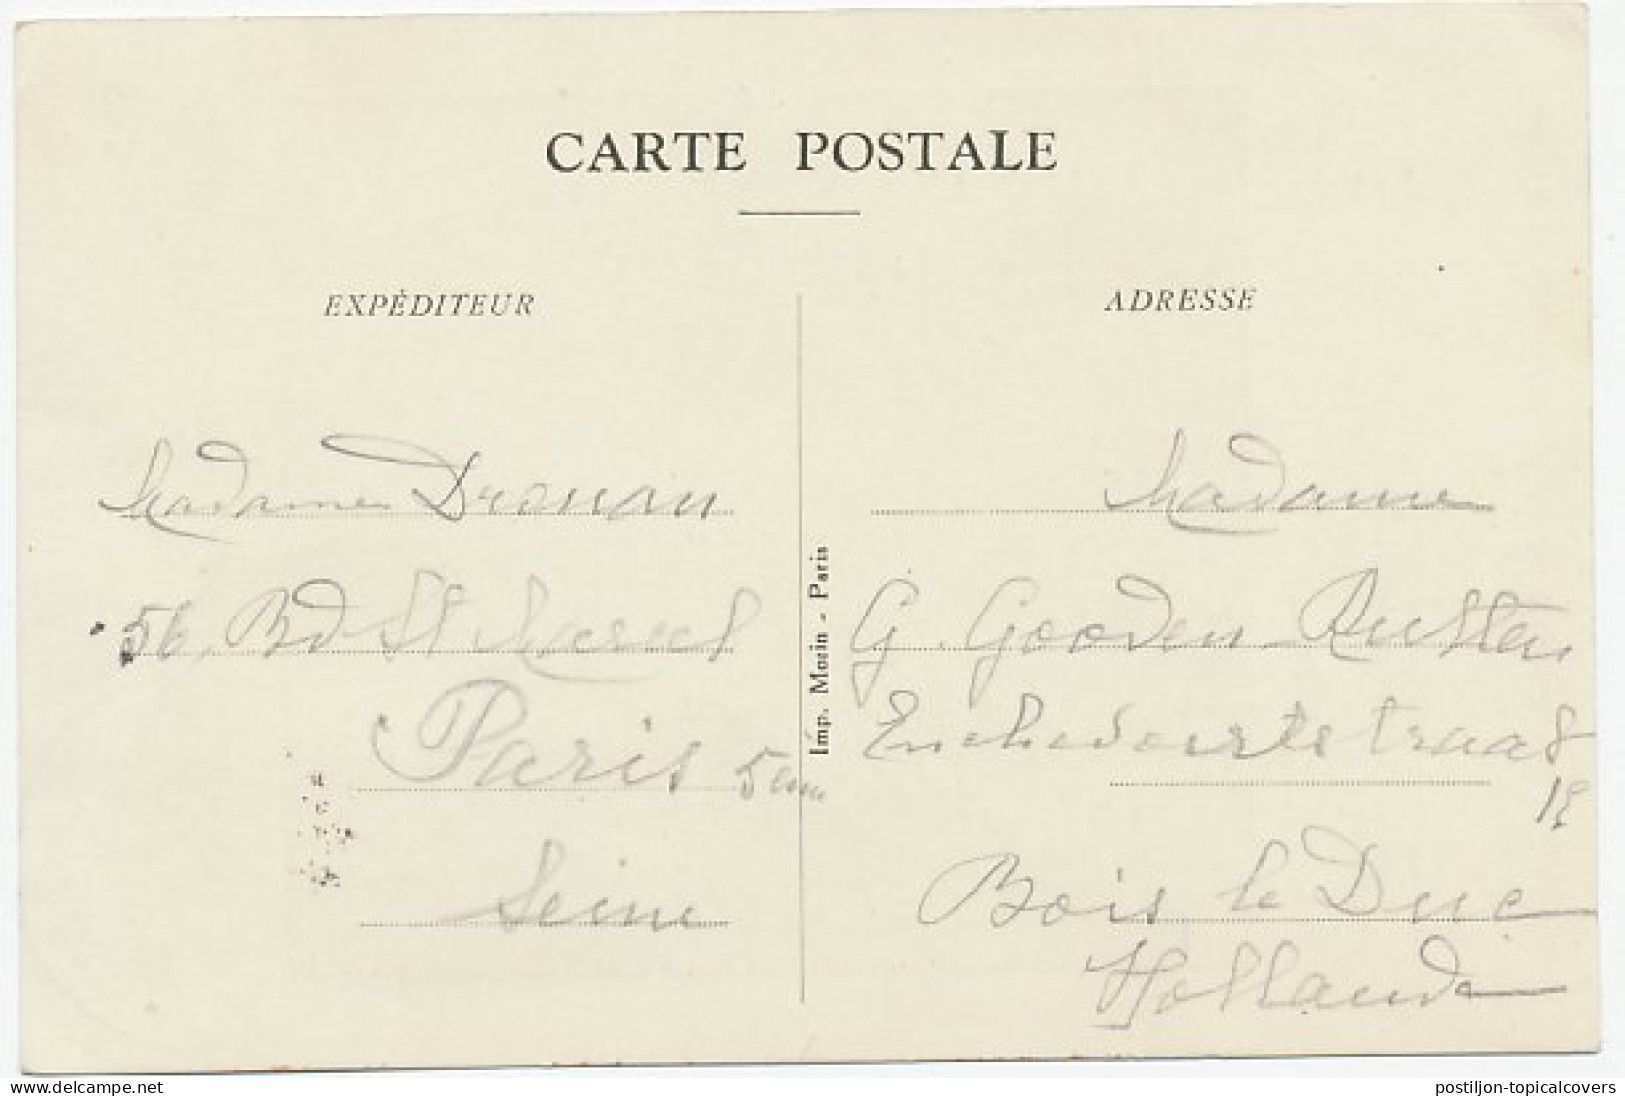 CARTE POSTALE
EXPÉDITEUR
Madame Drouan
56, Bd St Marcel
Paris 5em
Seine
Imp. Morin - Paris
ADRESSE
Madame
G. Gooden Rutten
straat
18
Bois le Duc
Hollande
delcampe.net
postiljon-topicalcovers